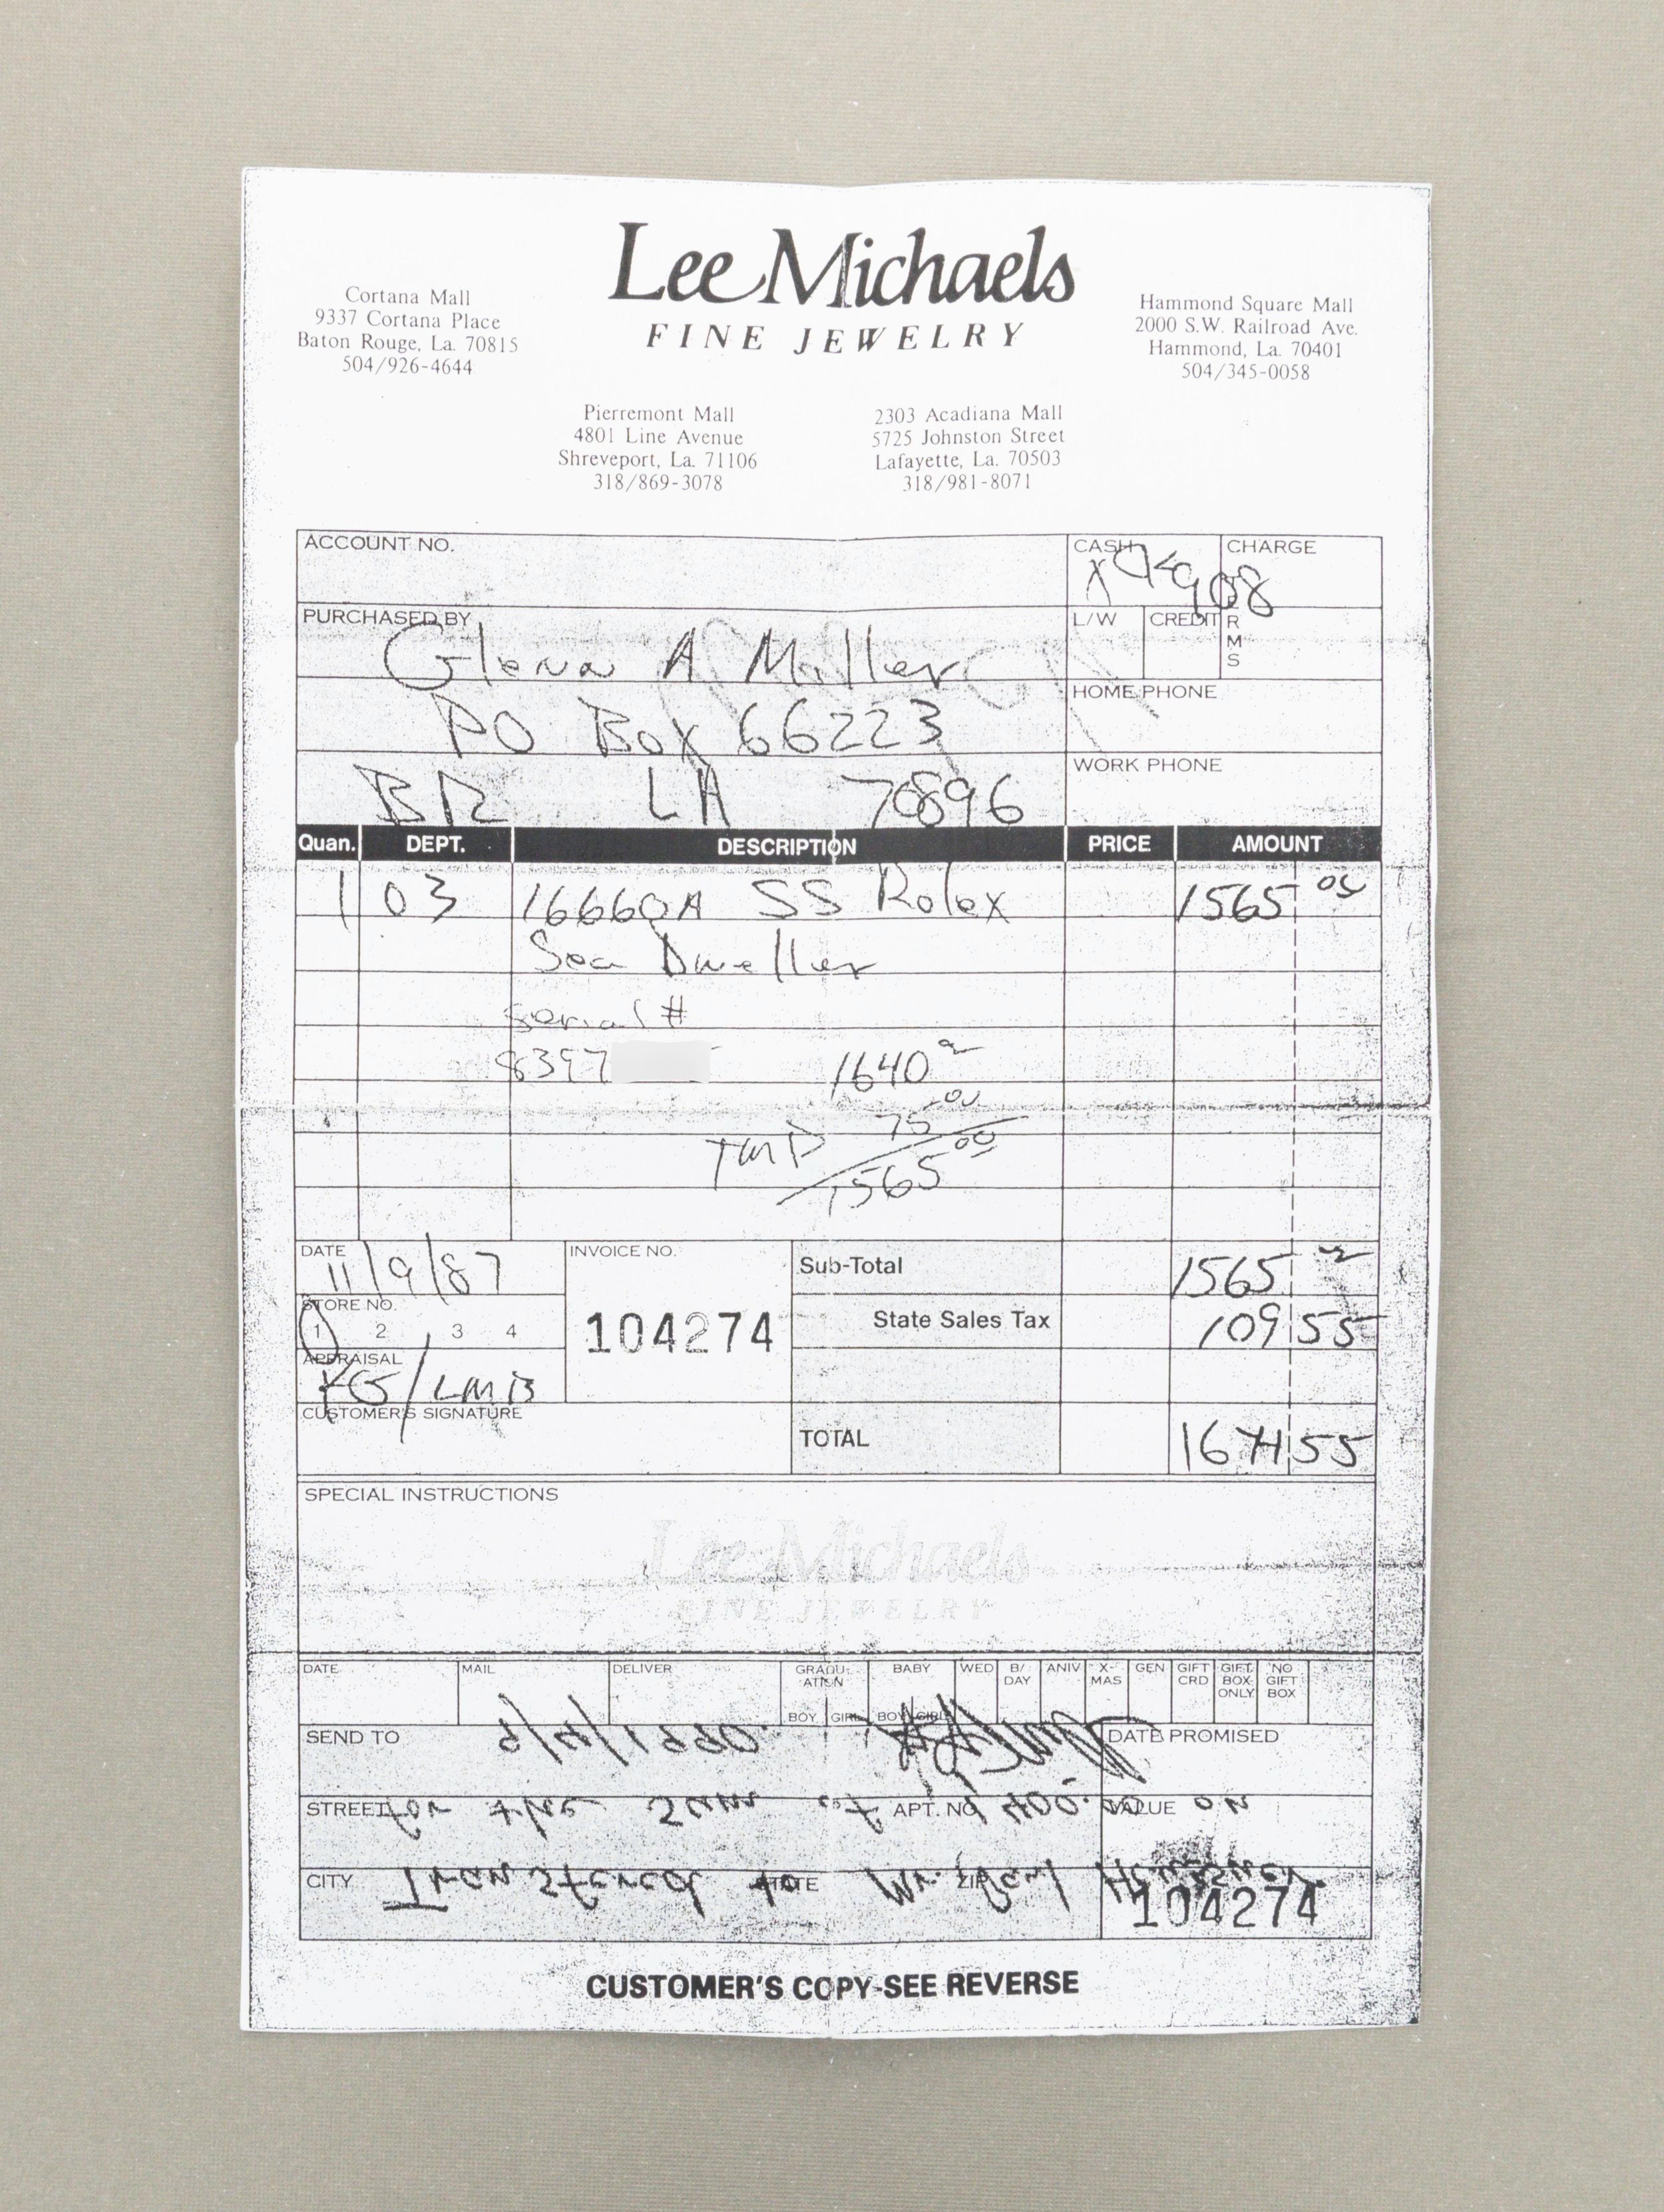 Lee Michaels
FINE JEWELRY
Cortana Mall
9337 Cortana Place
Baton Rouge, La. 70815
504/926-4644
Hammond Square Mall
2000 S.W. Railroad Ave.
Hammond, La. 70401
504/345-0058
Pierremont Mall
4801 Line Avenue
Shreveport, La. 71106
318/869-3078
2303 Acadiana Mall
5725 Johnston Street
Lafayette, La. 70503
318/981-8071
ACCOUNT NO.
CASH X CK908 CHARGE
PURCHASED BY Glenn A Miller
L/W CREDIT RMS
PO Box 66223
HOME PHONE
BR LA 70896
WORK PHONE
Quan. DEPT. DESCRIPTION PRICE AMOUNT
1 03 16660A SS Rolex 1565 00
Sea Dweller
Serial #
8397 1640
75 00
1565 00
DATE 11/9/87
INVOICE NO. 104274
Sub-Total 1565
STORE NO. 1 2 3 4
State Sales Tax 109 55
APPRAISAL / LMB
CUSTOMER'S SIGNATURE
TOTAL 1674 55
SPECIAL INSTRUCTIONS
Lee Michaels
FINE JEWELRY
DATE MAIL DELIVER GRADU-ATION BOY GIRL BABY BOY GIRL WED B/DAY ANIV X-MAS GEN GIFT CRD GIFT BOX ONLY NO GIFT BOX
SEND TO DATE PROMISED
STREET APT. NO. VALUE
CITY STATE ZIP
104274
Transfered to Mr. Paul
for the sum of 1400.00 on
CUSTOMER'S COPY-SEE REVERSE